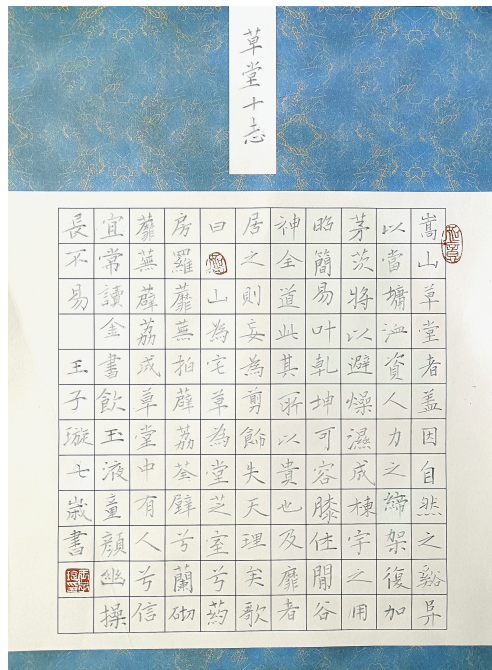 草堂十志
嵩山草堂者盖因自然之谿阜
以當墉洫資人力之締架復加
茅茨將以避燥濕成棟宇之用
昭簡易叶乾坤可容膝住閒谷
神全道此其所以貴也及靡者
居之則妄為剪飾失天理矣歌
曰山為宅草為堂芝室兮葯
房羅蘼蕪拍薜荔荃壁兮蘭砌
蘼蕪薜荔成草堂中有人兮信
宜常讀金書飲玉液童顏幽操
長不易 王子璇七歲書